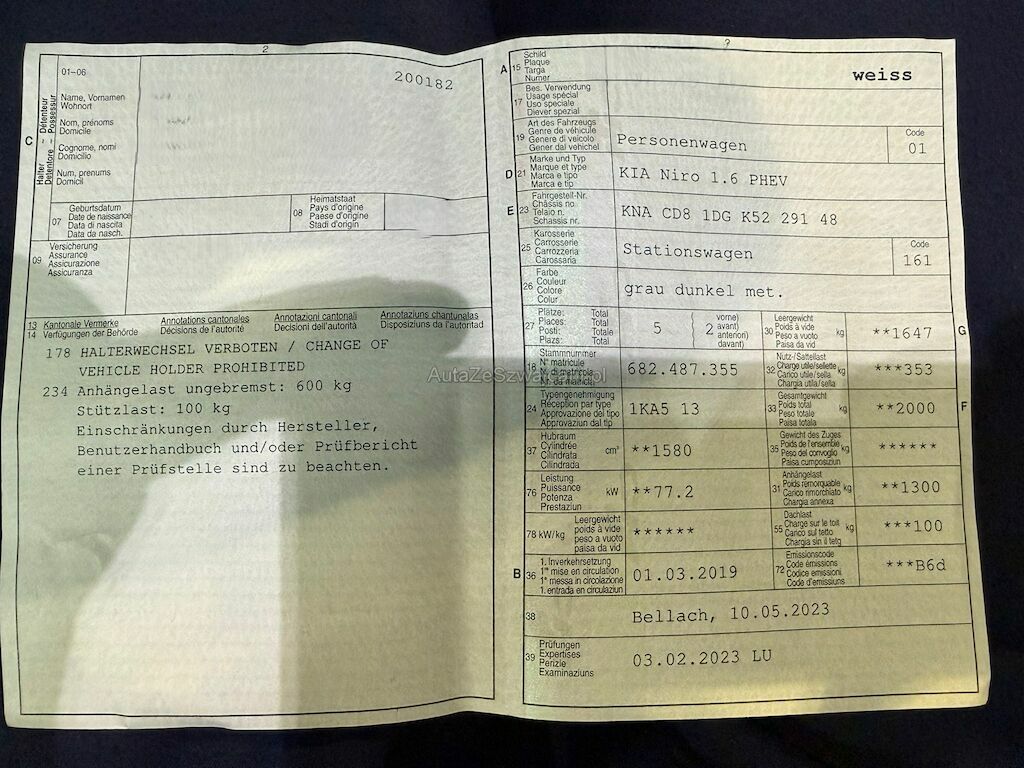 2
01-06
200182
C
Halter ~ Détenteur
Detentore ~ Possessur
Name, Vornamen
Wohnort
Nom, prénoms
Domicile
Cognome, nomi
Domicilio
Num, prenums
Domicil
07
Geburtsdatum
Date de naissance
Data di nascita
Data da nasch.
08
Heimatstaat
Pays d'origine
Paese d'origine
Stadi d'origin
09
Versicherung
Assurance
Assicurazione
Assicuranza
13 Kantonale Vermerke Annotations cantonales Annotazioni cantonali Annotaziuns chantunalas
14 Verfügungen der Behörde Décisions de l'autorité Decisioni dell'autorità Disposiziuns da l'autoritad
178 HALTERWECHSEL VERBOTEN / CHANGE OF
VEHICLE HOLDER PROHIBITED
234 Anhängelast ungebremst: 600 kg
Stützlast: 100 kg
Einschränkungen durch Hersteller,
Benutzerhandbuch und/oder Prüfbericht
einer Prüfstelle sind zu beachten.
A 15
Schild
Plaque
Targa
Numer
weiss
17
Bes. Verwendung
Usage spécial
Uso speciale
Diever spezial
19
Art des Fahrzeugs
Genre de véhicule
Genere di veicolo
Gener dal vehichel
Personenwagen
Code
01
D 21
Marke und Typ
Marque et type
Marca e tipo
Marca e tip
KIA Niro 1.6 PHEV
E 23
Fahrgestell-Nr.
Châssis no
Telaio n.
Schassis nr.
KNA CD8 1DG K52 291 48
25
Karosserie
Carrosserie
Carrozzeria
Carossaria
Stationswagen
Code
161
26
Farbe
Couleur
Colore
Colur
grau dunkel met.
27
Plätze: Total
Places: Total
Posti: Totale
Plazs: Total
5
2
vorne)
avant)
anteriori)
davant)
30
Leergewicht
Poids à vide
Peso a vuoto
Paisa da vid
kg
**1647
G
18
Stammnummer
N° matricule
N. di matricola
Nr. da matricla
682.487.355
32
Nutz-/Sattellast
Charge utile/sellette
Carico utile/sella
Chargia utila/sella
kg
***353
24
Typengenehmigung
Réception par type
Approvazione del tipo
Approvaziun dal tip
1KA5 13
33
Gesamtgewicht
Poids total
Peso totale
Paisa totala
kg
**2000
F
37
Hubraum
Cylindrée
Cilindrata
Cilindrada
cm³
**1580
35
Gewicht des Zuges
Poids de l'ensemble
Peso del convoglio
Paisa cumposiziun
kg
******
76
Leistung
Puissance
Potenza
Prestaziun
kW
**77.2
31
Anhängelast
Poids remorquable
Carico rimorchiato
Chargia annexa
kg
**1300
78 kW/kg
Leergewicht
poids à vide
peso a vuoto
paisa da vid
******
55
Dachlast
Charge sur le toit
Carico sul tetto
Chargia sin il tetg
kg
***100
B 36
1. Inverkehrsetzung
1re mise en circulation
1a messa in circolazione
1. entrada en circulaziun
01.03.2019
72
Emissionscode
Code émissions
Codice emissioni
Code d'emissiuns
***B6d
38
Bellach, 10.05.2023
39
Prüfungen
Expertises
Perizie
Examinaziuns
03.02.2023 LU